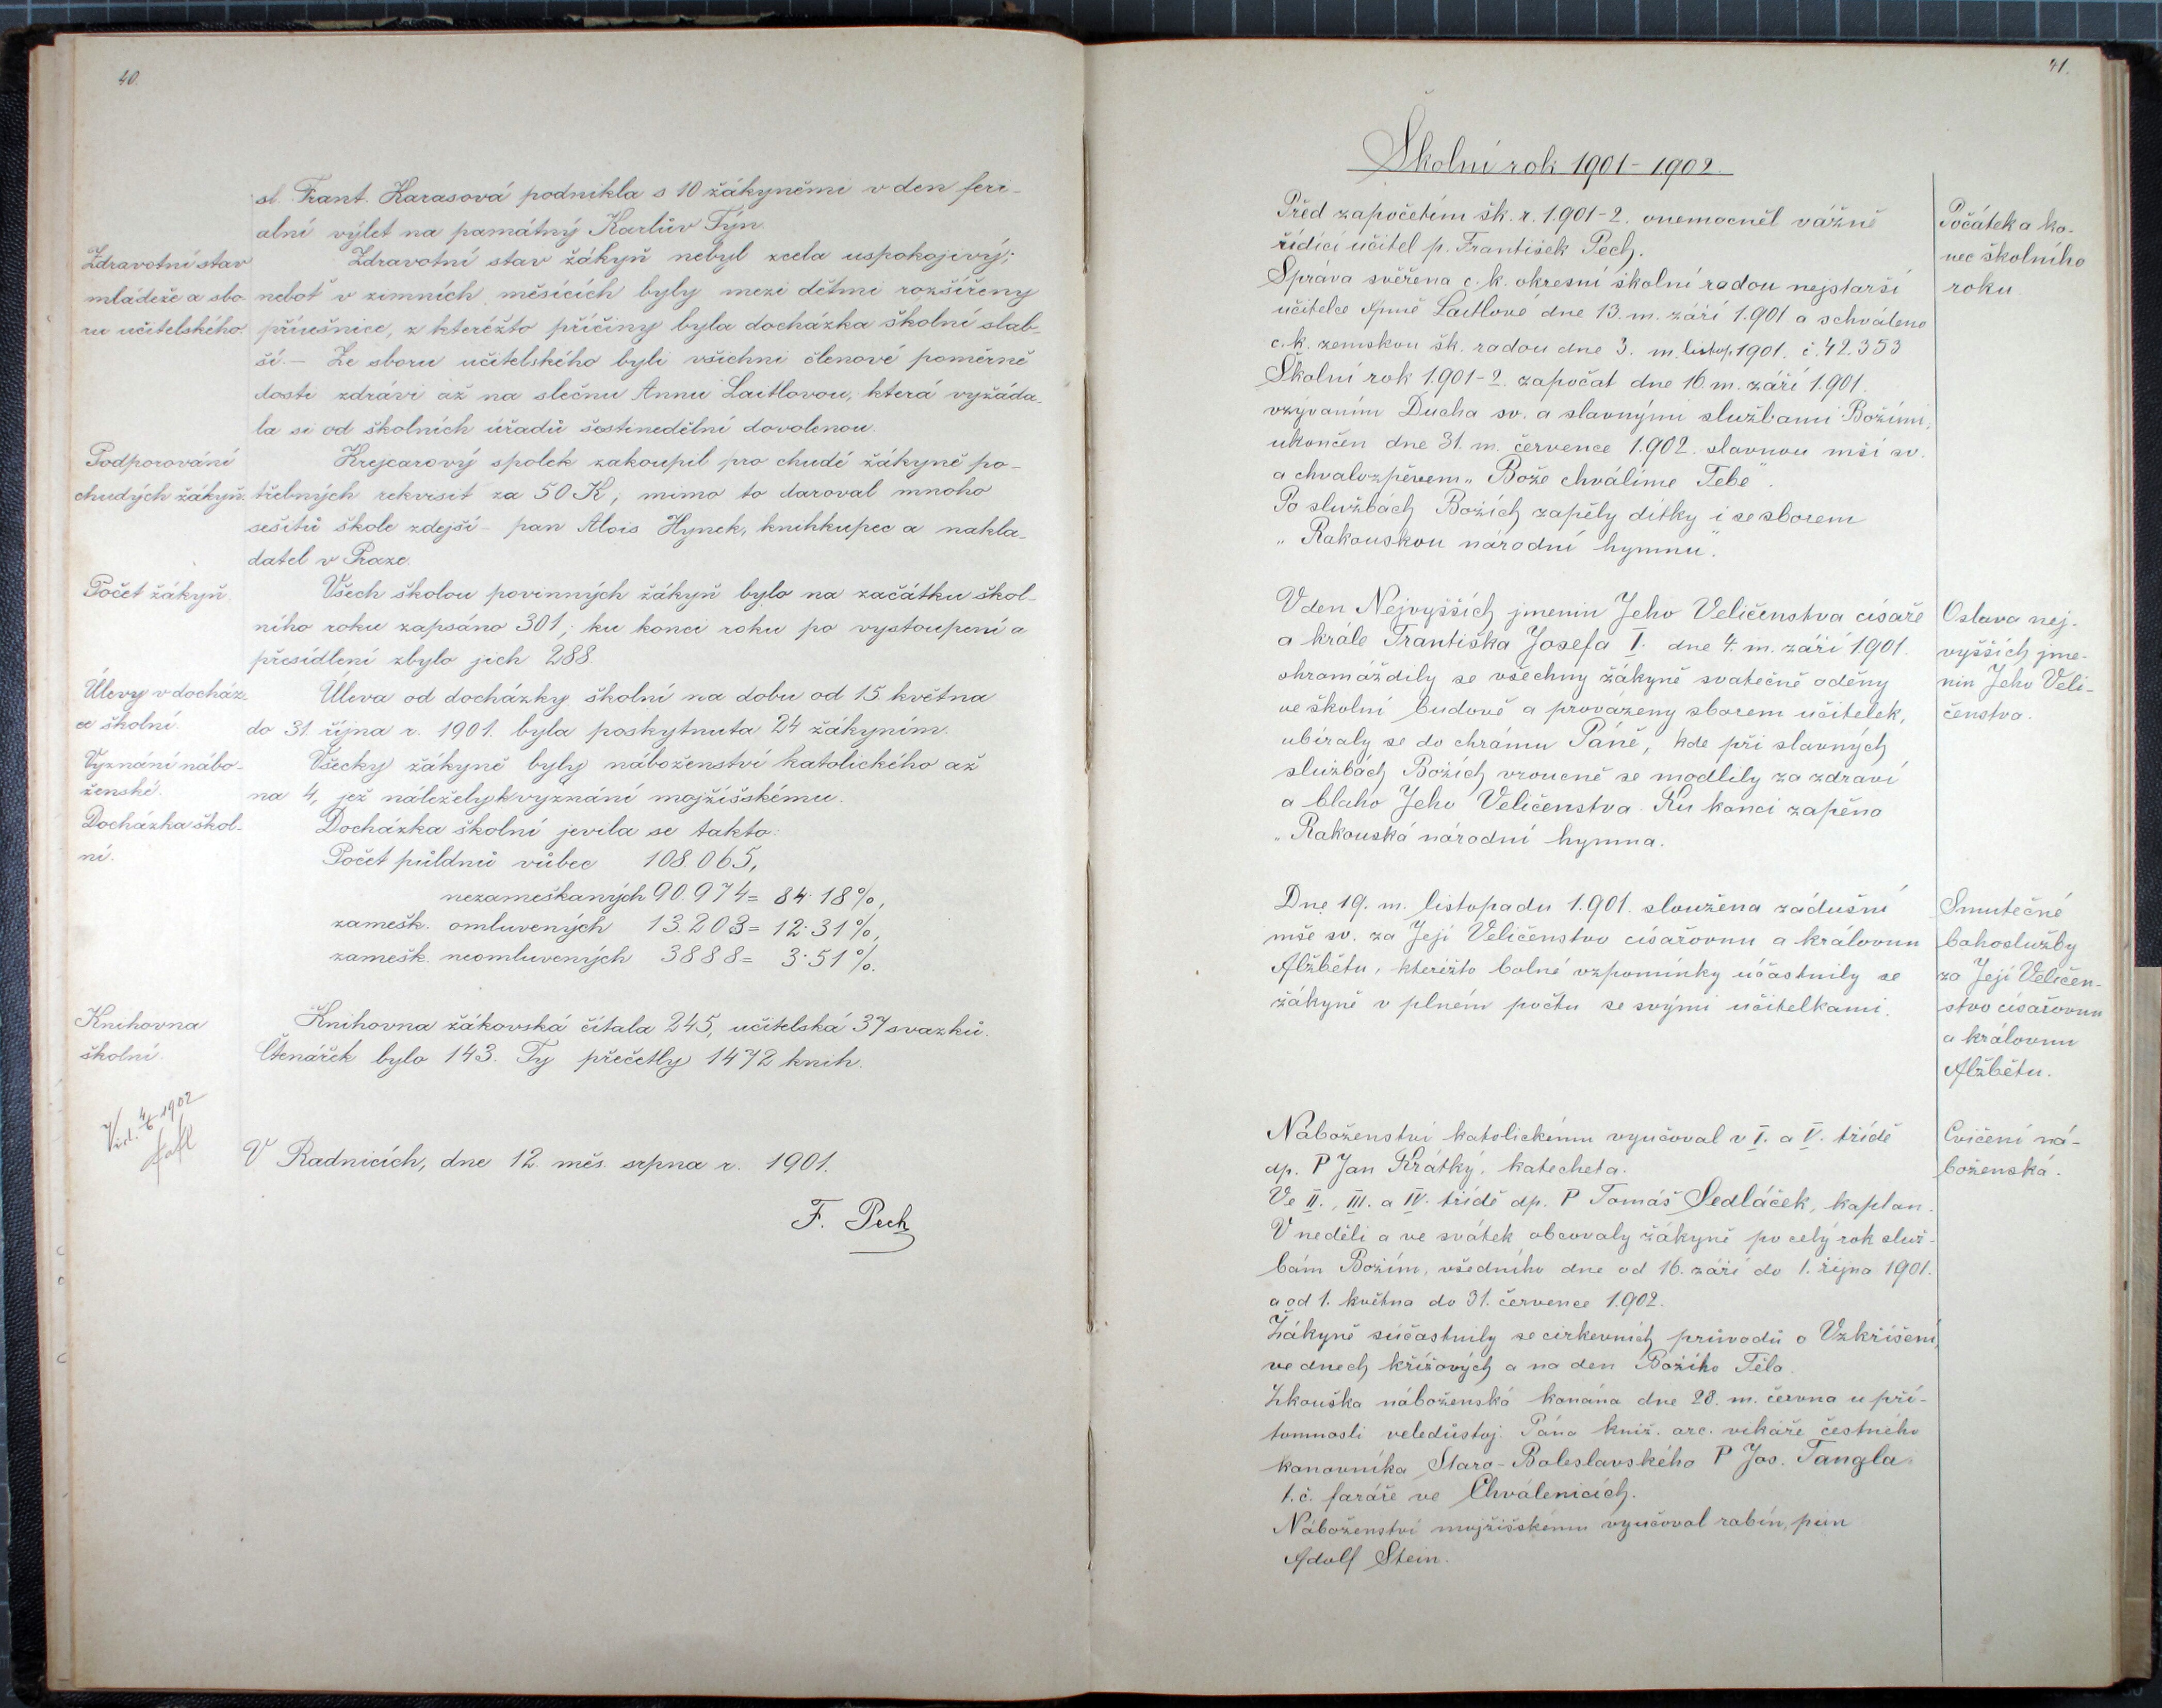 40.
sl. Frant. Karasová podnikla s 10 žákyněmi v den feri-
alní výlet na památný Karlův Týn.
Zdravotní stav
mládeže a sbo-
ru učitelského.
Zdravotní stav žákyň nebyl zcela uspokojivý;
neboť v zimních měsících byly mezi dětmi rozšířeny
příušnice, z kteréžto příčiny byla docházka školní slab-
ší. – Ze sboru učitelského byli všichni členové poměrně
dosti zdrávi až na slečnu Annu Laitlovou, která vyžáda-
la si od školních úřadů šestinedělní dovolenou.
Podporování
chudých žákyň.
Krejcarový spolek zakoupil pro chudé žákyně po-
třebných rekvisit za 50 K; mimo to daroval mnoho
sešitů škole zdejší – pan Alois Hynek, knihkupec a nakla-
datel v Praze.
Počet žákyň.
Všech školou povinných žákyň bylo na začátku škol-
ního roku zapsáno 301; ku konci roku po vystoupení a
přesídlení zbylo jich 288.
Úlevy v docház-
ce školní.
Úleva od docházky školní na dobu od 15. května
do 31. října r. 1901. byla poskytnuta 24 žákyním.
Vyznání nábo-
ženské.
Všecky žákyně byly náboženství katolického až
na 4, jež náležely k vyznání mojžíšskému.
Docházka škol-
ní.
Docházka školní jevila se takto:
Počet půldnů vůbec 108 065,
nezameškaných 90.974 = 84·18 %,
zamešk. omluvených 13.203 = 12·31 %,
zamešk. neomluvených 3888 = 3·51 %.
Knihovna
školní.
Knihovna žákovská čítala 245, učitelská 37 svazků.
Čtenářek bylo 143. Ty přečetly 1472 knih.
Vid. 4/6 1902
V Radnicích, dne 12. měs. srpna r. 1901.
F. Pech
41.
Školní rok 1901-1902.
Před započetím šk. r. 1.901-2. onemocněl vážně
řídící učitel p. František Pech.
Správa svěřena c. k. okresní školní radou nejstarší
učitelce Anně Laitlové dne 13. m. září 1.901 a schváleno
c. k. zemskou šk. radou dne 3. m. listop. 1901. č. 42.353
Školní rok 1.901-2. započat dne 16. m. září 1.901.
vzýváním Ducha sv. a slavnými službami Božími,
ukončen dne 31. m. července 1.902. slavnou mší sv.
a chvalozpěvem „Bože chválíme Tebe".
Po službách Božích zapěly dítky i se sborem
„Rakouskou národní hymnu".
Počátek a ko-
nec školního
roku.
V den Nejvyšších jmenin Jeho Veličenstva císaře
a krále Františka Josefa I. dne 4. m. září 1.901.
shromáždily se všechny žákyně svatečně oděny
ve školní budově a provázeny sborem učitelek,
ubíraly se do chrámu Páně, kde při slavných
službách Božích vroucně se modlily za zdraví
a blaho Jeho Veličenstva. Ku konci zapěna
„Rakouská národní hymna.
Oslava nej-
vyšších jme-
nin Jeho Veli-
čenstva.
Dne 19. m. listopadu 1.901. sloužena zádušní
mše sv. za Její Veličenstvo císařovnu a královnu
Alžbětu, kterižto bolné vzpomínky účastnily se
žákyně v plném počtu se svými učitelkami.
Smutečné
bohoslužby
za Její Veličen-
stvo císařovnu
a královnu
Alžbětu.
Náboženství katolickému vyučoval v I. a V. třídě
dp. P Jan Krátký, katecheta.
Ve II., III. a IV. třídě dp. P Tomáš Sedláček, kaplan.
V neděli a ve svátek obcovaly žákyně po celý rok služ-
bám Božím, všedního dne od 16. září do 1. října 1901.
a od 1. května do 31. července 1.902.
Žákyně súčastnily se církevních průvodů o Vzkříšení,
ve dnech křížových a na den Božího Těla.
Zkouška náboženská konána dne 28. m. června u pří-
tomnosti veledůstoj. Pána kníž. arc. vikáře čestného
kanovníka Staro-Boleslavského P Jos. Tangla
t. č. faráře ve Chválenicích.
Náboženství mojžíšskému vyučoval rabín, pan
Adolf Stein.
Cvičení ná-
boženská.